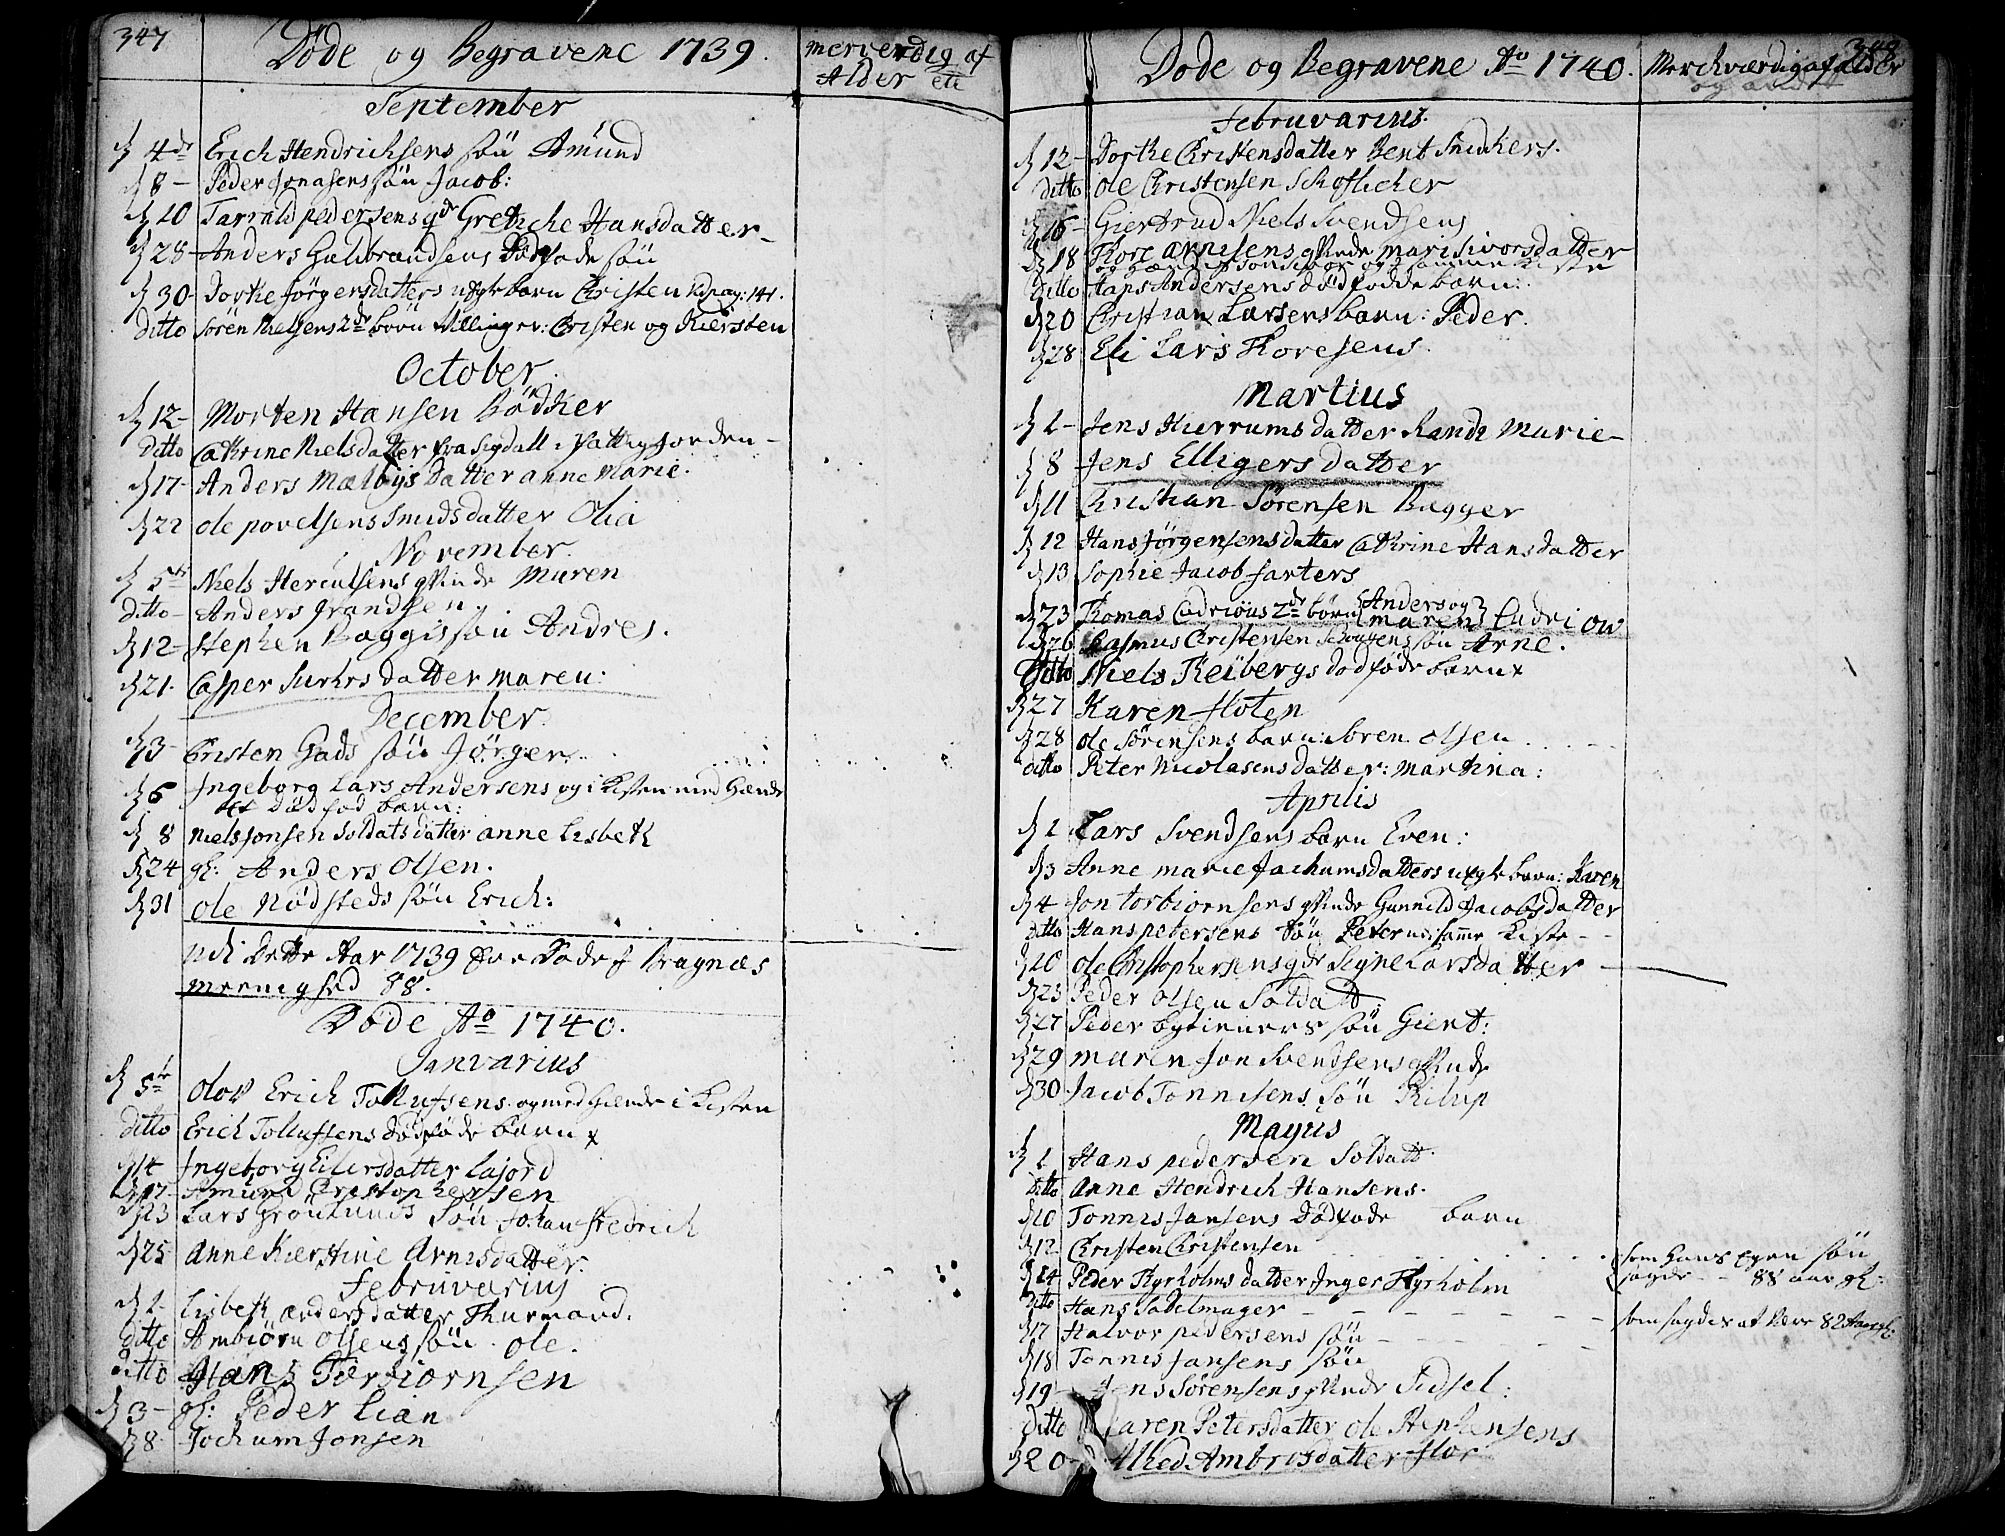 347
Døde og Begravene 1739.
merverdig af
Alder etc
September
d 4de Erich Hendrichsens søn Amund
d 8 – Peder Jonasens søn Jacob:
d 20 Tarrald pedersens qde Gretiche Hansdatter –
d 28 – Anders Gulbrandsens Dødføde søn
d 30 – Dorthe Jørgensdatters uægte barn Christen pag: 141.
ditto Søren Nielsens 2de børn tvillinger: Cristen og Kiersten
October.
d 12 – Morten Hansen Bødker
ditto Cathrine Nielsdatter fra Sigdall i Fattiggaarden –
d 17 – Anders Mælbys Datter anne Marie.
d 22 ole povelsens Smids datter Olia
November.
d 5te Niels Herculsens qvinde Maren
ditto – Anders frandsen.
d 12 – Stephen Baggis søn Andres.
d 21 – Casper Surkrs datter maren.
December.
d 3 – Cristen Gads søn Jørgen
d 6 Ingeborg Lars Andersens og i Kisten med Hænde
et dødfød barn:
d 8 Niels Jonsen Soldats datter anne Lisbeth
d 24 gl: Anders Olsen.
d 31 ole Nødsteds søn Erich:
udi Dette Aar 1739 Ere Døde af Bragnæs
meenighed 88.
Døde Ao 1740.
Janvarius
d 5te Olov Erich Tollufsens og med hænde i Kisten
ditto Erich Tollufsens dødføde barn
d 14 Ingeborg Eilersdatter Lajord
d 17 – Amund Christophersen
d 23 Lars Grønlunds søn Johan fredrich
d 25 – Anne Kierstine Arnisdatter.
Februvarius
d 2 – Lisbeth andersdatter Thurmand.
ditto Ambiørn Olsens søn ole.
ditto Hans Torbiørnsen
d 3 – gl: Peder Lian
d 8 – Jochum Jonsen
Døde og Begravene Ao 1740.
Merchværdig af alder
Februvarius.
d 12 – Dorthe Christensdatter Bent Snickers.
ditto ole Christensen Skoflicker
d 16 – Giertrud Niels Svendsens
d 18 Thore Arnisens qvinde mari Sivorsdatter
ditto Hans Andersens dødfødde barn:
d 20 Christian Larsens barn: Peder.
d 28 Eli Lars Thoresens.
Martius
d 2 – Jens Kierrums datter Randi Marie –
d 8 Jens Elligers datter
d 11 Christian Sørensen Bagger
d 12 Hans Jørgensens datter Cathrine Hansdatter
d 13 Sophie Jacob farters
d 23 Thomas Cudrious 2de børn {Anders og maren} Cudriow
d 26 Rasmus Christensen søn Arne.
ditto Niels Reibergs dødføde barn
d 27 Karen floten
d 28 ole Sørensens barn: Søren Olsen
ditto Peter Nicolasens datter: Martina:
Aprilis
d 2 Lars Svendsens barn Even:
d 3 Anne marie Jachumsdatters uægte barn: Karen
d 4 Jon torbiørnsens qvinde Gunnild Jacobsdatter
ditto Hans petersens søn Peter udi samme Kiste –
d 20 ole Christophersens qde Signe Larsdatter
d 23 Peder Olsen Soldatt
d 27 Peder bytieners søn Giert:
d 29 maren Jon Svendsens qvinde
d 30 Jacob Tønnisens søn Philip
Mayus
d 2 Hans pedersen Soldatt.
ditto Anne Hendrich Hansens.
d 10 Tonnis Jansens dødføde barn
d 12 Christen Christensen
som hans egen søn
sagde – 88 aar gl:
d 14 Peder Thyrholms datter Inger Thyrholm
ditto Hans Sadelmager – – – – – –
som sagdes at være 82 Aar gl:
d 17 Halvor pedersens søn – – –
d 18 Tonnis Jansens søn
d 19 – Jens Sørensens qvinde Sidsel:
ditto Karen Petersdatter ole Stephensens
d 20 – Alhed Ambrosdatter flor